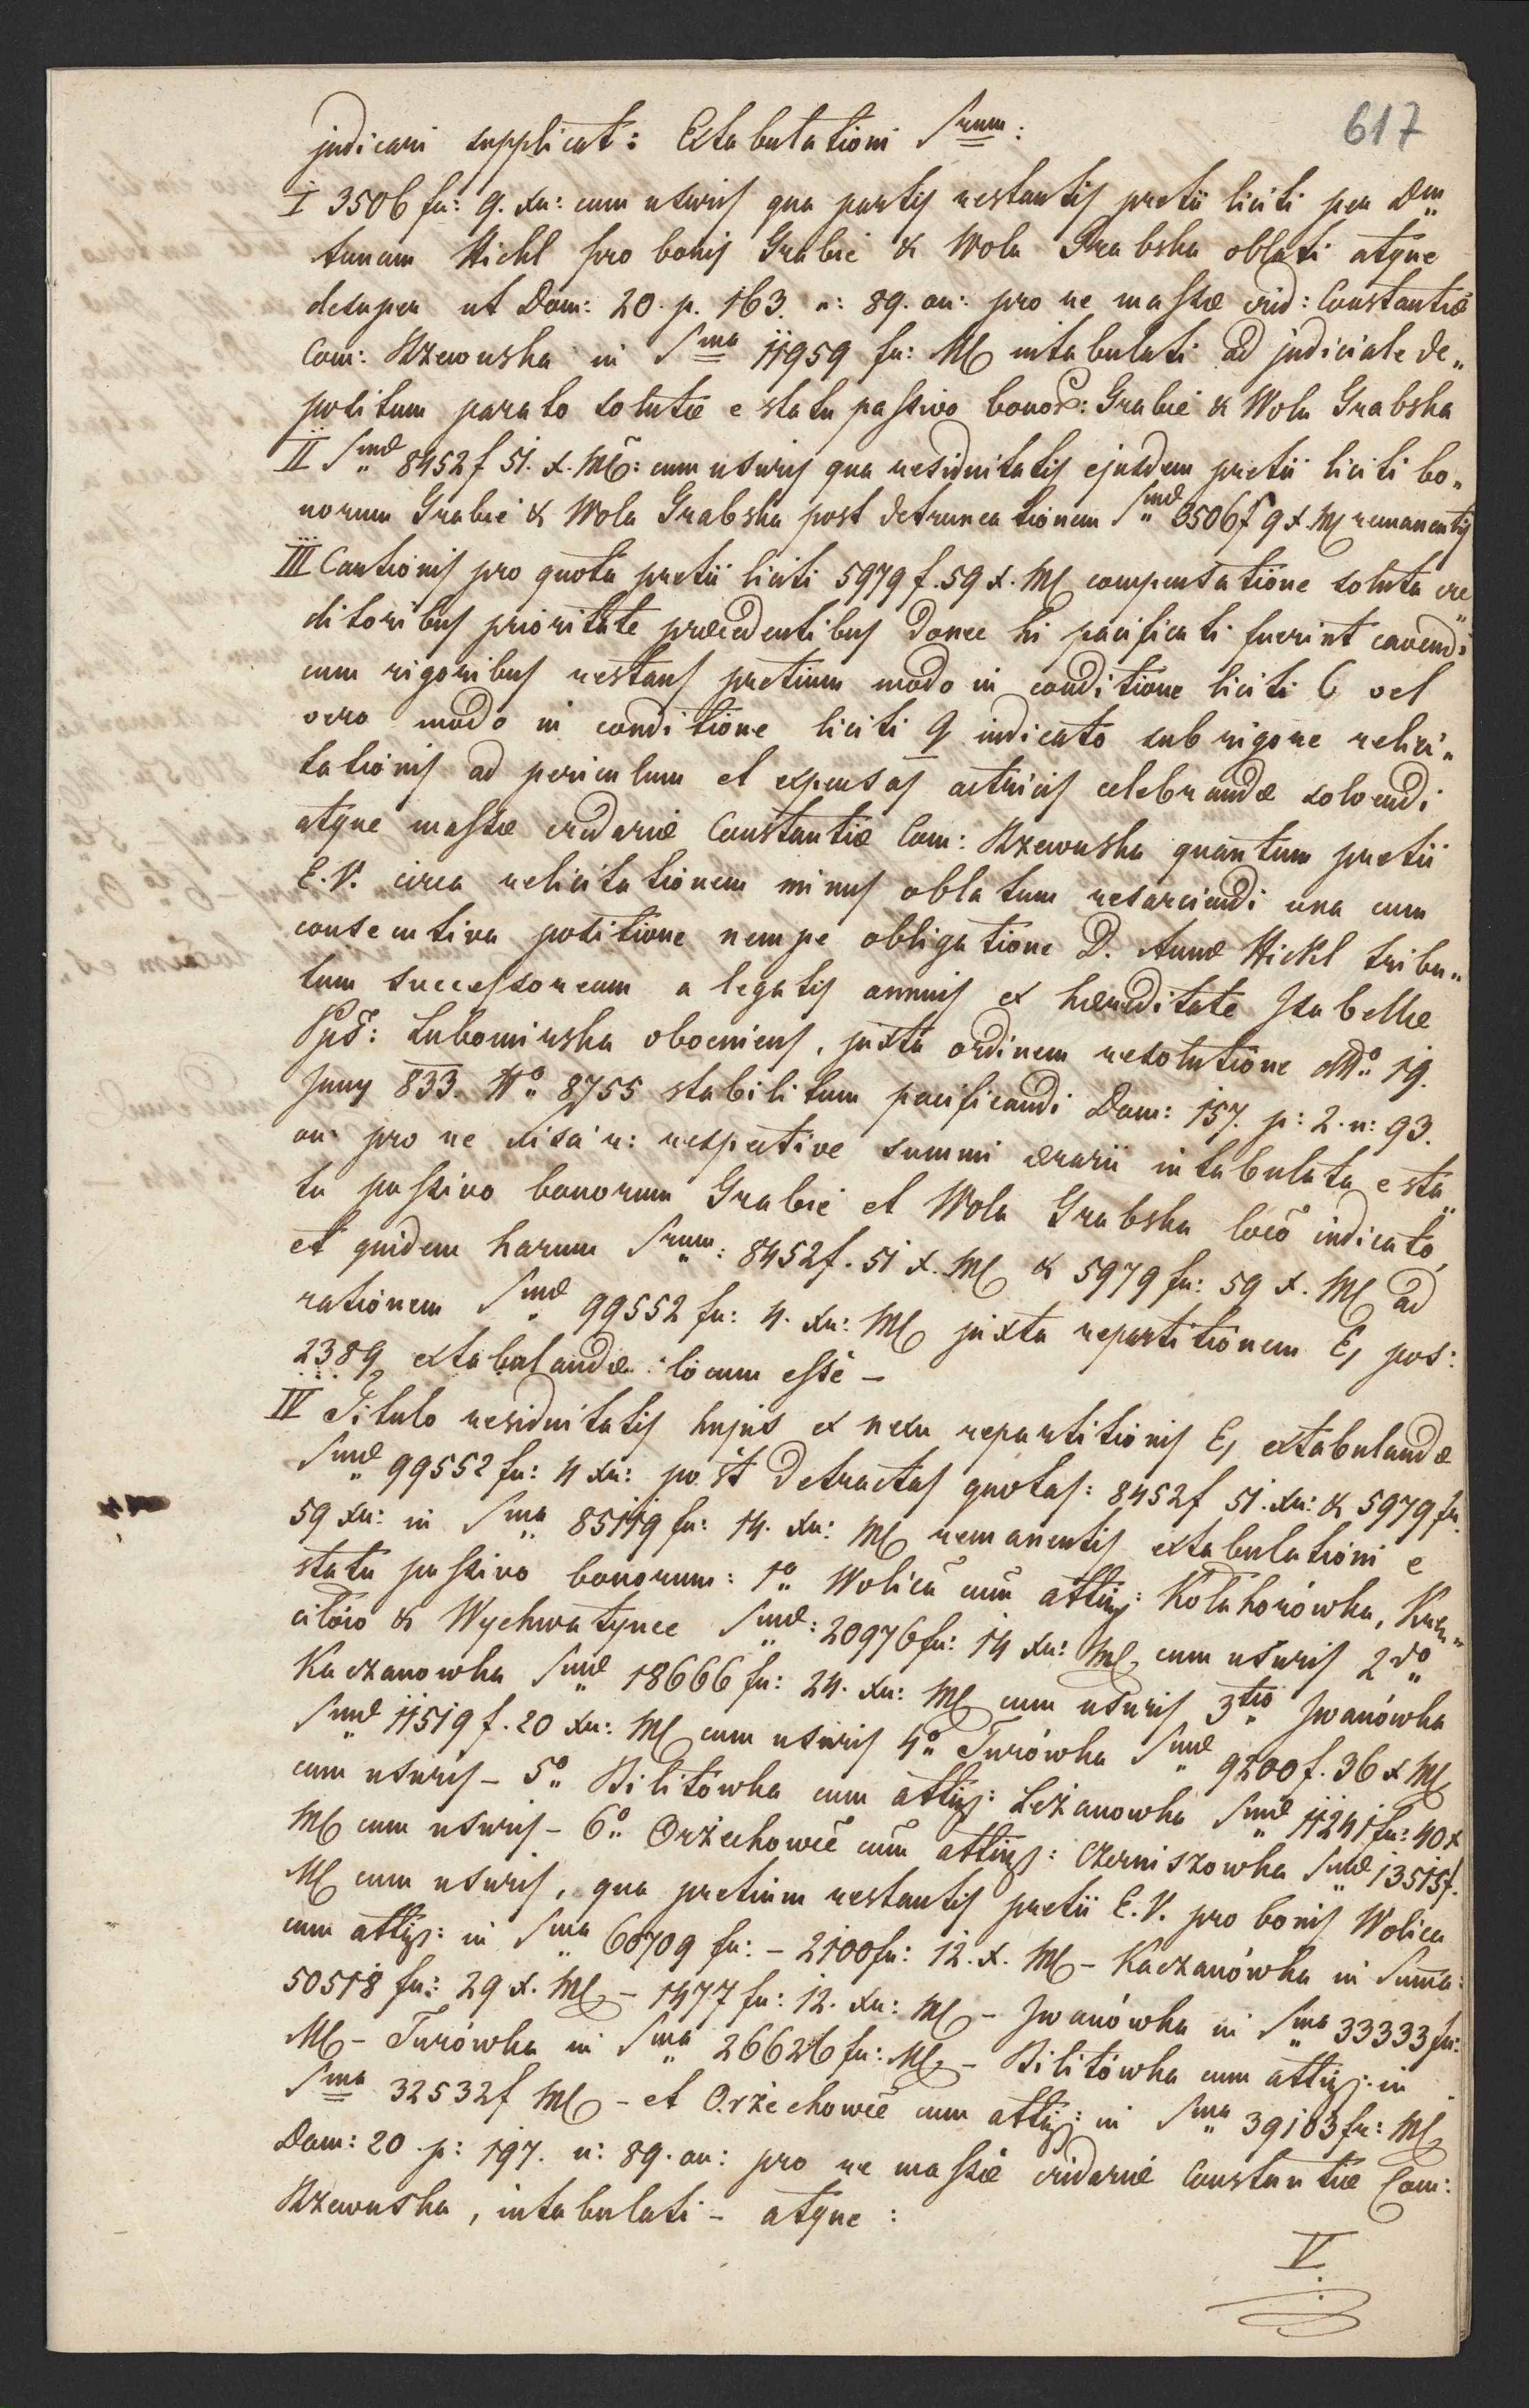 617
judicari supplicat: Extabulationi Srum:
I 3506 fr: 9. xr: cum usuris qua partis restantis pretii liciti per Dm
Annam Hickl pro bonis Grabie & Wola Grabska oblati atque
desuper ut Dom: 20. p. 163. n: 89. on: pro re massæ crid: Constantiæ
Com: Rzewuska in Sma 11959 fr: MC intabulati ad judiciale de„
positum parato solutæ e statu passivo bonor: Grabie & Wola Grabska
II Smæ 8452 f 51. x. MC: cum usuris qua residuitatis ejusdem pretii liciti bo„
norum Grabie & Wola Grabska post detruncationem Smæ 3506 f 9 x. MC remanentis
III Cautionis pro quota pretii liciti 5979 f. 59 x. MC compensatione soluta cre„
ditoribus prioritate præcedentibus donec hi pacificati fuerint cavendi
cum rigoribus restans pretium modo in conditione liciti 6 vel
vero modo in conditione liciti 9 indicato sub rigore relici„
tationis ad periculum et expensas actricis celebrandæ solvendi
atque massæ cridariæ Constantiæ Com: Rzewuska quantum pretii
E. V. circa relicitationem minus oblatum resarciendi una cum
consecutiva positione nempe obligatione D. Annæ Hickl tribu„
tum successoreum a legatis annuis ex hæreditate Isabellæ
Pss: Lubomirska obveniens, juxta ordinem resolutione ddo 19.
Juny 833. No 8755 stabilitum pacificandi Dom: 157. p: 2. n: 93.
on: pro re respective summi ærarii intabulata e sta„
tu passivo bonorum Grabie et Wola Grabska loco indicato,
et quidem harum Srum: 8452 f. 51 x. MC & 5979 fr: 59 x. MC ad
rationem Smæ 99552 fr: 4. xr: MC juxta repartitionem E, pos:
2389 extabulandæ locum esse –
IV Titulo residuitatis hujus ex nexu repartitionis E, extabulandæ
Smæ 99552 fr: 4 xr: post detractas quotas: 8452 f 51. xr: & 5979 fr:
59 xr: in Sma 85119 fr: 14. xr: MC remanentis extabulationi e
statu passivo bonorum: 1o Wolica cum attin: Kołakorówka, Krze„
ciłow & Wychwatynce Smæ: 20976 fr: 14 xr: MC, cum usuris 2do
Kaczanowka Smæ 18666 fr: 24. xr: MC cum usuris 3tio Iwanówka
Smæ 11519 f. 20 xr: MC cum usuris 4o Turówka Smæ 9200 f. 36 x MC
cum usuris – 5o Bilitówka cum attin: Leżanowka Smæ 11241 fr: 40 x
MC cum usuris – 6o Orżechowce cum attin: Czerniszowka Smæ 13515 f.
MC cum usuris, qua pretium restantis pretii E. V. pro bonis Wolica
cum attin: in Sma 60709 fr: – 2100 fr: 12. x. MC – Kaczanówka in Summa:
50518 fr: 29 x. MC – 1477 fr: 12. xr: MC – Iwanówka in Sma 33333 fr:
MC – Turówka in Sma 26626 fr: MC, – Bilitówka cum attin: in
Sma 32532 f MC – et Orżechowce cum attin: in Sma 39103 fr: MC,
Dom: 20 . p: 197. n: 89. on: pro re massæ cridariæ Constantiæ Com:
Rzewuska, intabulati – atque :
V